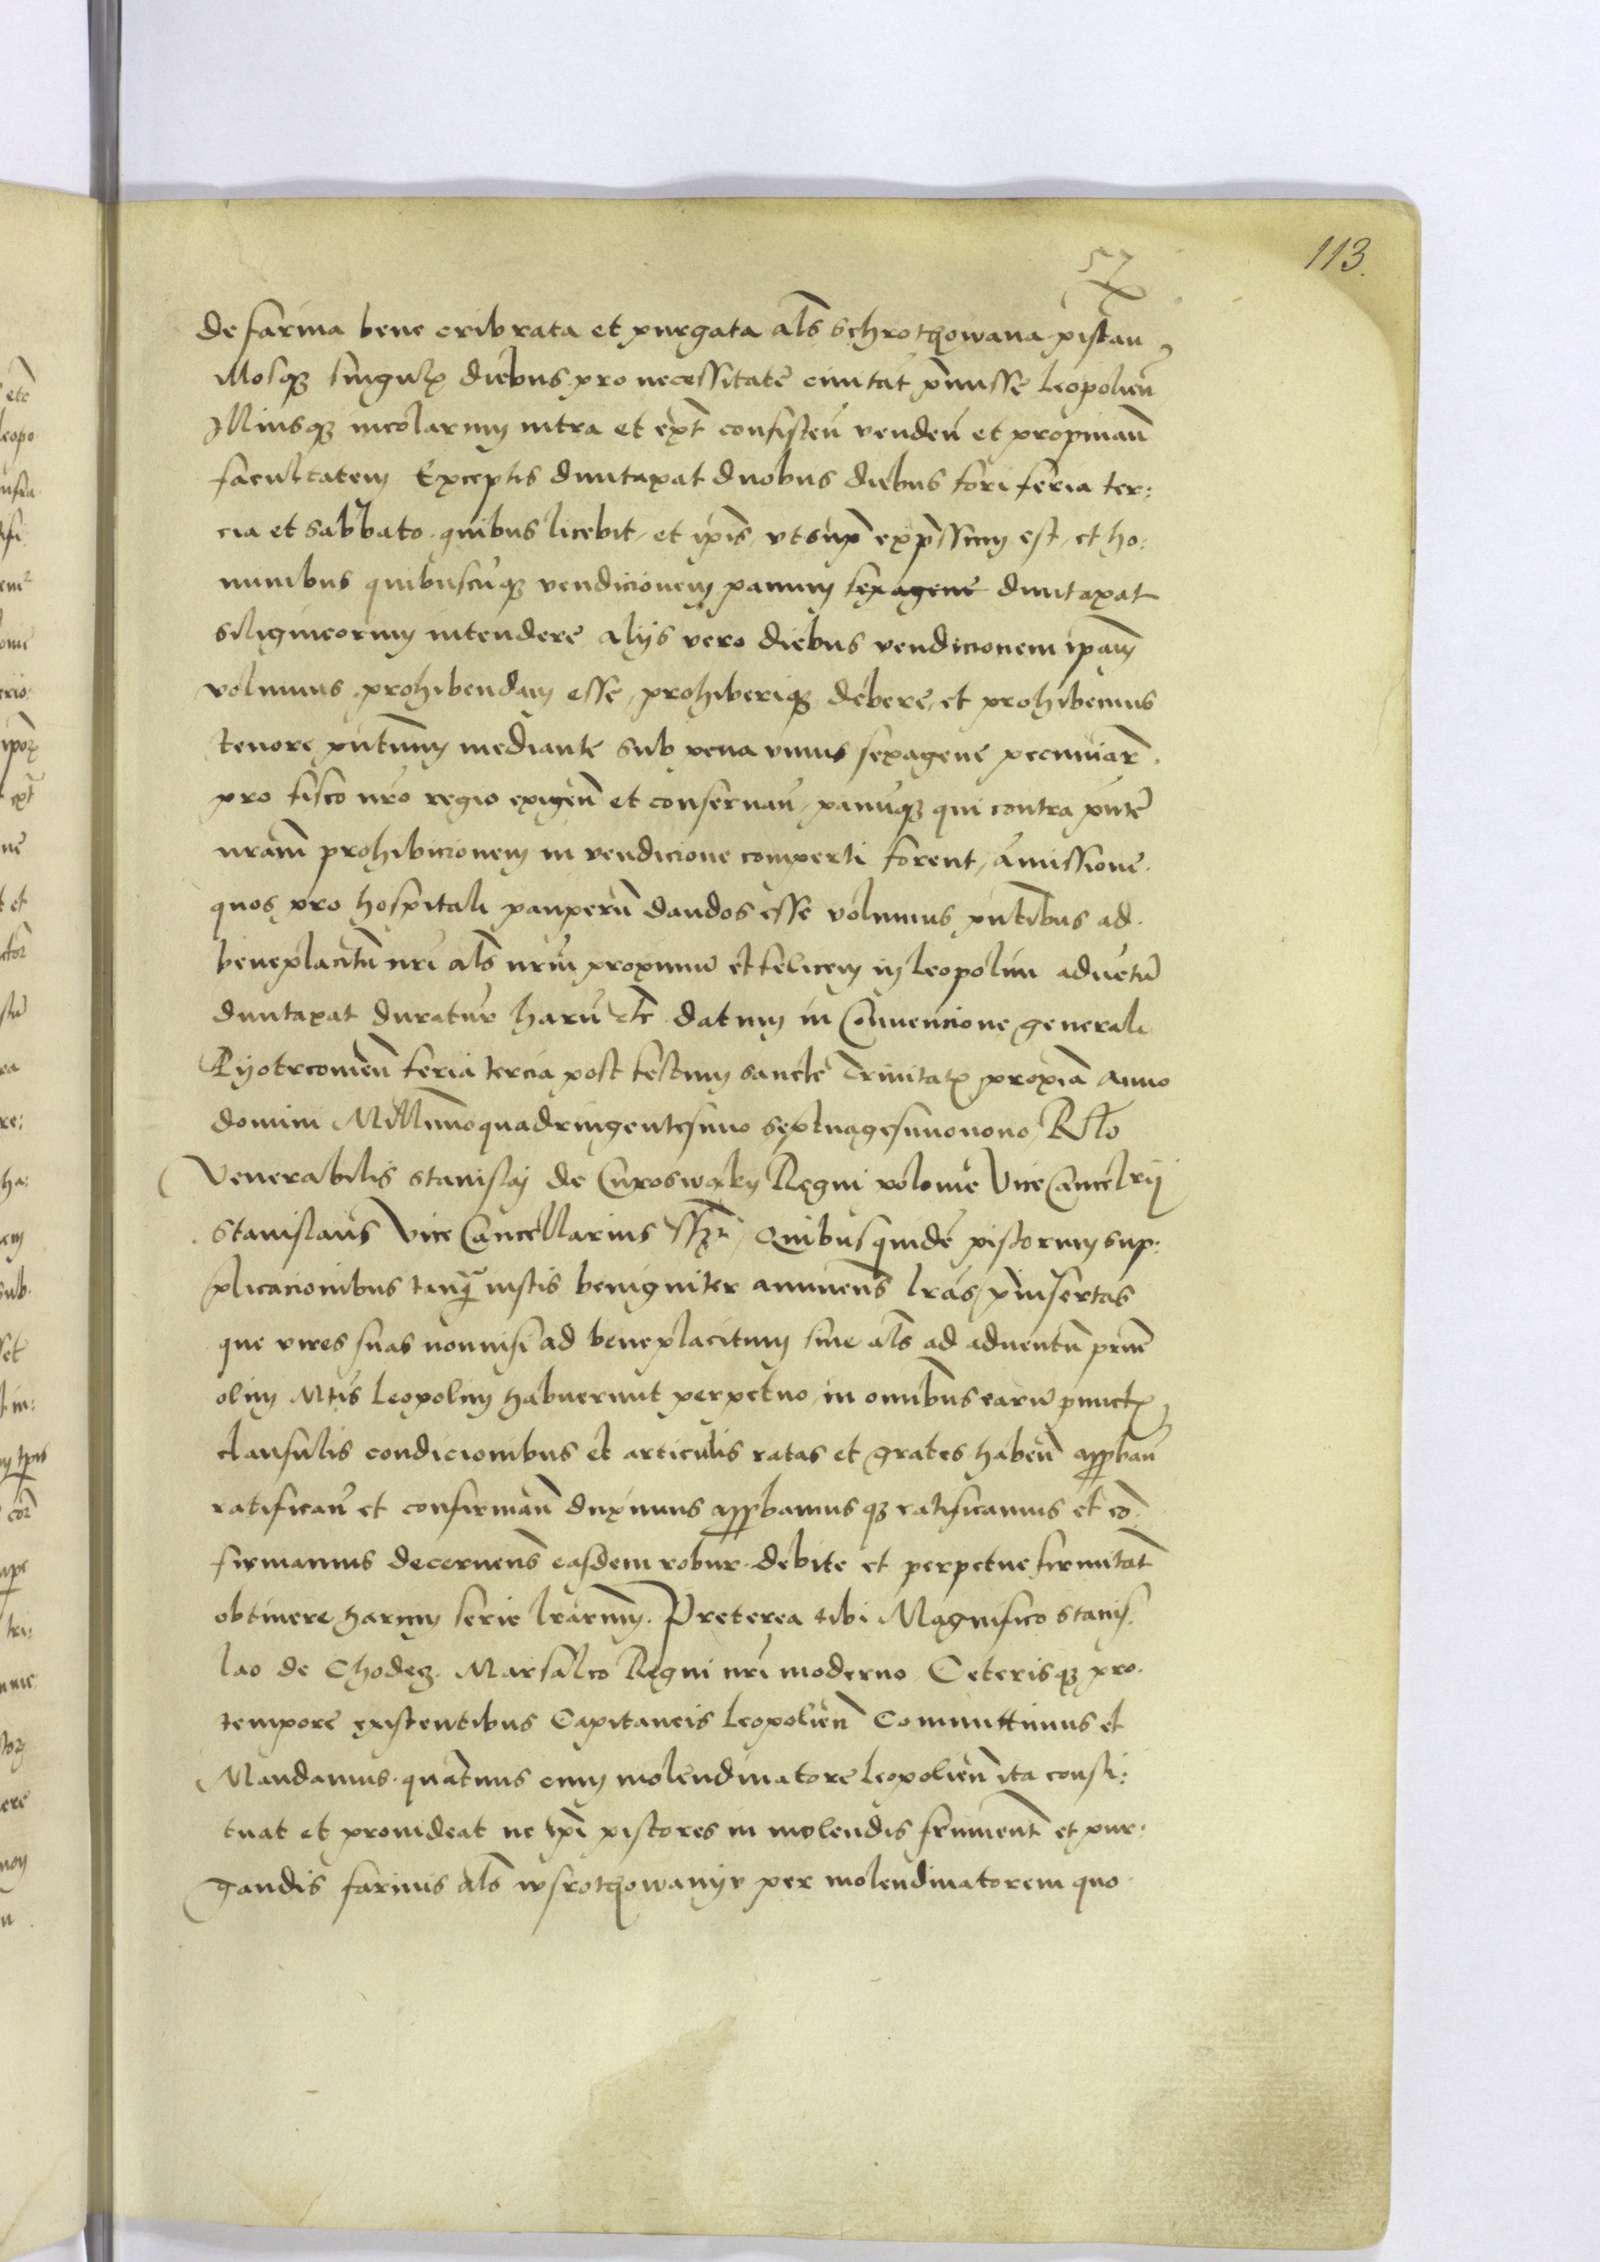 57
113.
de farina bene cribrata et purgata als schrotqowana pistan
illosq singulis diebus pro necessitate civitat pmisse leopolien
Illiusq incolarum intra et ext consisten venden et propinan
facultatem Exceptis duntaxat duobus diebus fori feria ter:
cia et sabbato quibus licebit et ipis ut sup expssum est et ho:
minibus quibuscuq vendicionem panum sexagene duntaxat
siligineorum intendere alijs vero diebus vendicionem ipam
volumus prohibendam esse prohiberiq debere et prohibemus
tenore pntium mediante sub pena unius sexagene pecuniar
pro fisco nro regio exigen et conservan panuq qui contra pnte
nram prohibicionem in vendicione comperti forent amissione
quos pro hospitali pauperu dandos esse volumus pntibus ad
beneplacitu nri als nrm proximu et felicem in leopolim adventu
duntaxat duratur haru etc datum in Convencione generali
Pyotrcovien feria tercia post festum sancte Trinitatis proxia anno
domini Millimoquadringentesimo septuagesimonono Rlto
Venerabilis stanislaj de Curoswaky Regni polonie Vice Cancelrij
stanislaus Vice Cancellarius sszt Quibusquide pistorum sup:
plicacionibus tanq iustis benigniter annuens lras pinsertas
que vires suas nonnisi ad beneplacitum sive als ad adventu prm
olim Mtis leopolim habuerunt perpetuo in omnibus earu punctis
clausulis condicionibus et articulis ratas et grates haben appban
ratifican et confirman duximus appbamusq ratificamus et co
firmamus decernens easdem robur debite et perpetue firmitat
obtinere harum serie lrarum. Preterea tibi Magnifico stanis
lao de Chodecz Marsalco Regni nri moderno Ceterisq pro
tempore existentibus Capitaneis leopolien Comittimus et
Mandamus quatinus cum molendinatore leopolien ita consti:
tuat et provideat ne ipi pistores in molendis frument et pur:
gandis farinis als wsrotqowanyv per molendinatorem quo